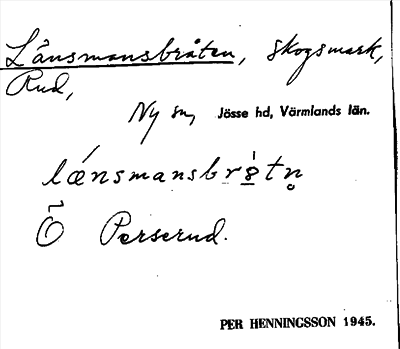 Länsmansbråten, skogsmark,
Rud,
Ny sn, Jösse hd, Värmlands län.
lǽnsmansbr8̱̍tn̥
Ö Perserud.
PER HENNINGSSON 1945.